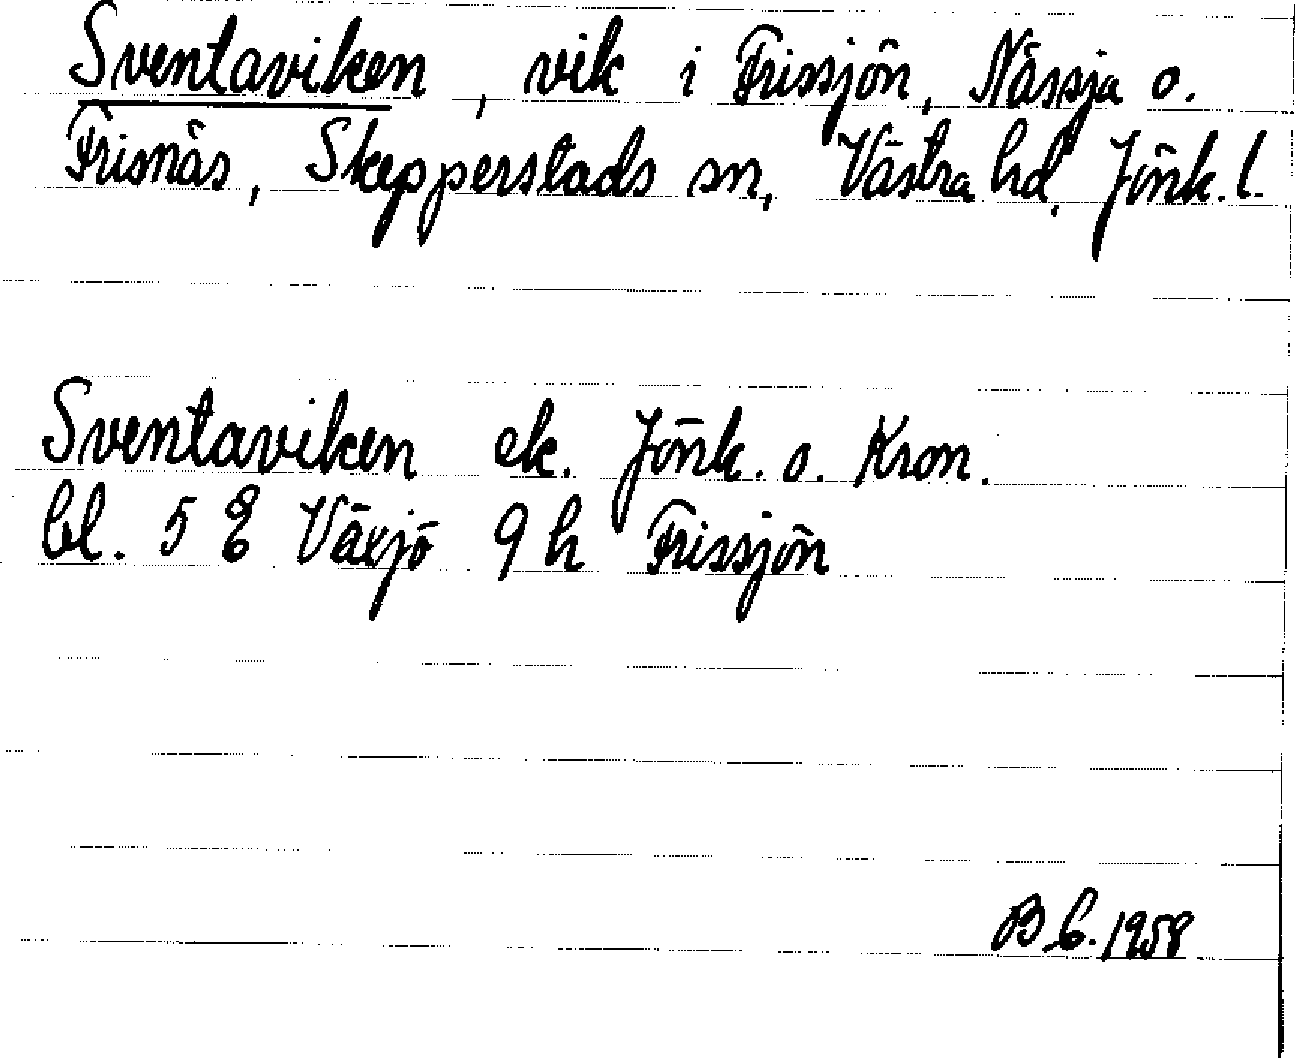 Sventaviken, vik i Frissjön, Nässja o.
Frisnäs, Skepperstads sn, Västra hd, Jönk. l.
Sventaviken ek. Jönk. o. Kron.
bl. 5 E Växjö 9 h Frissjön
1958